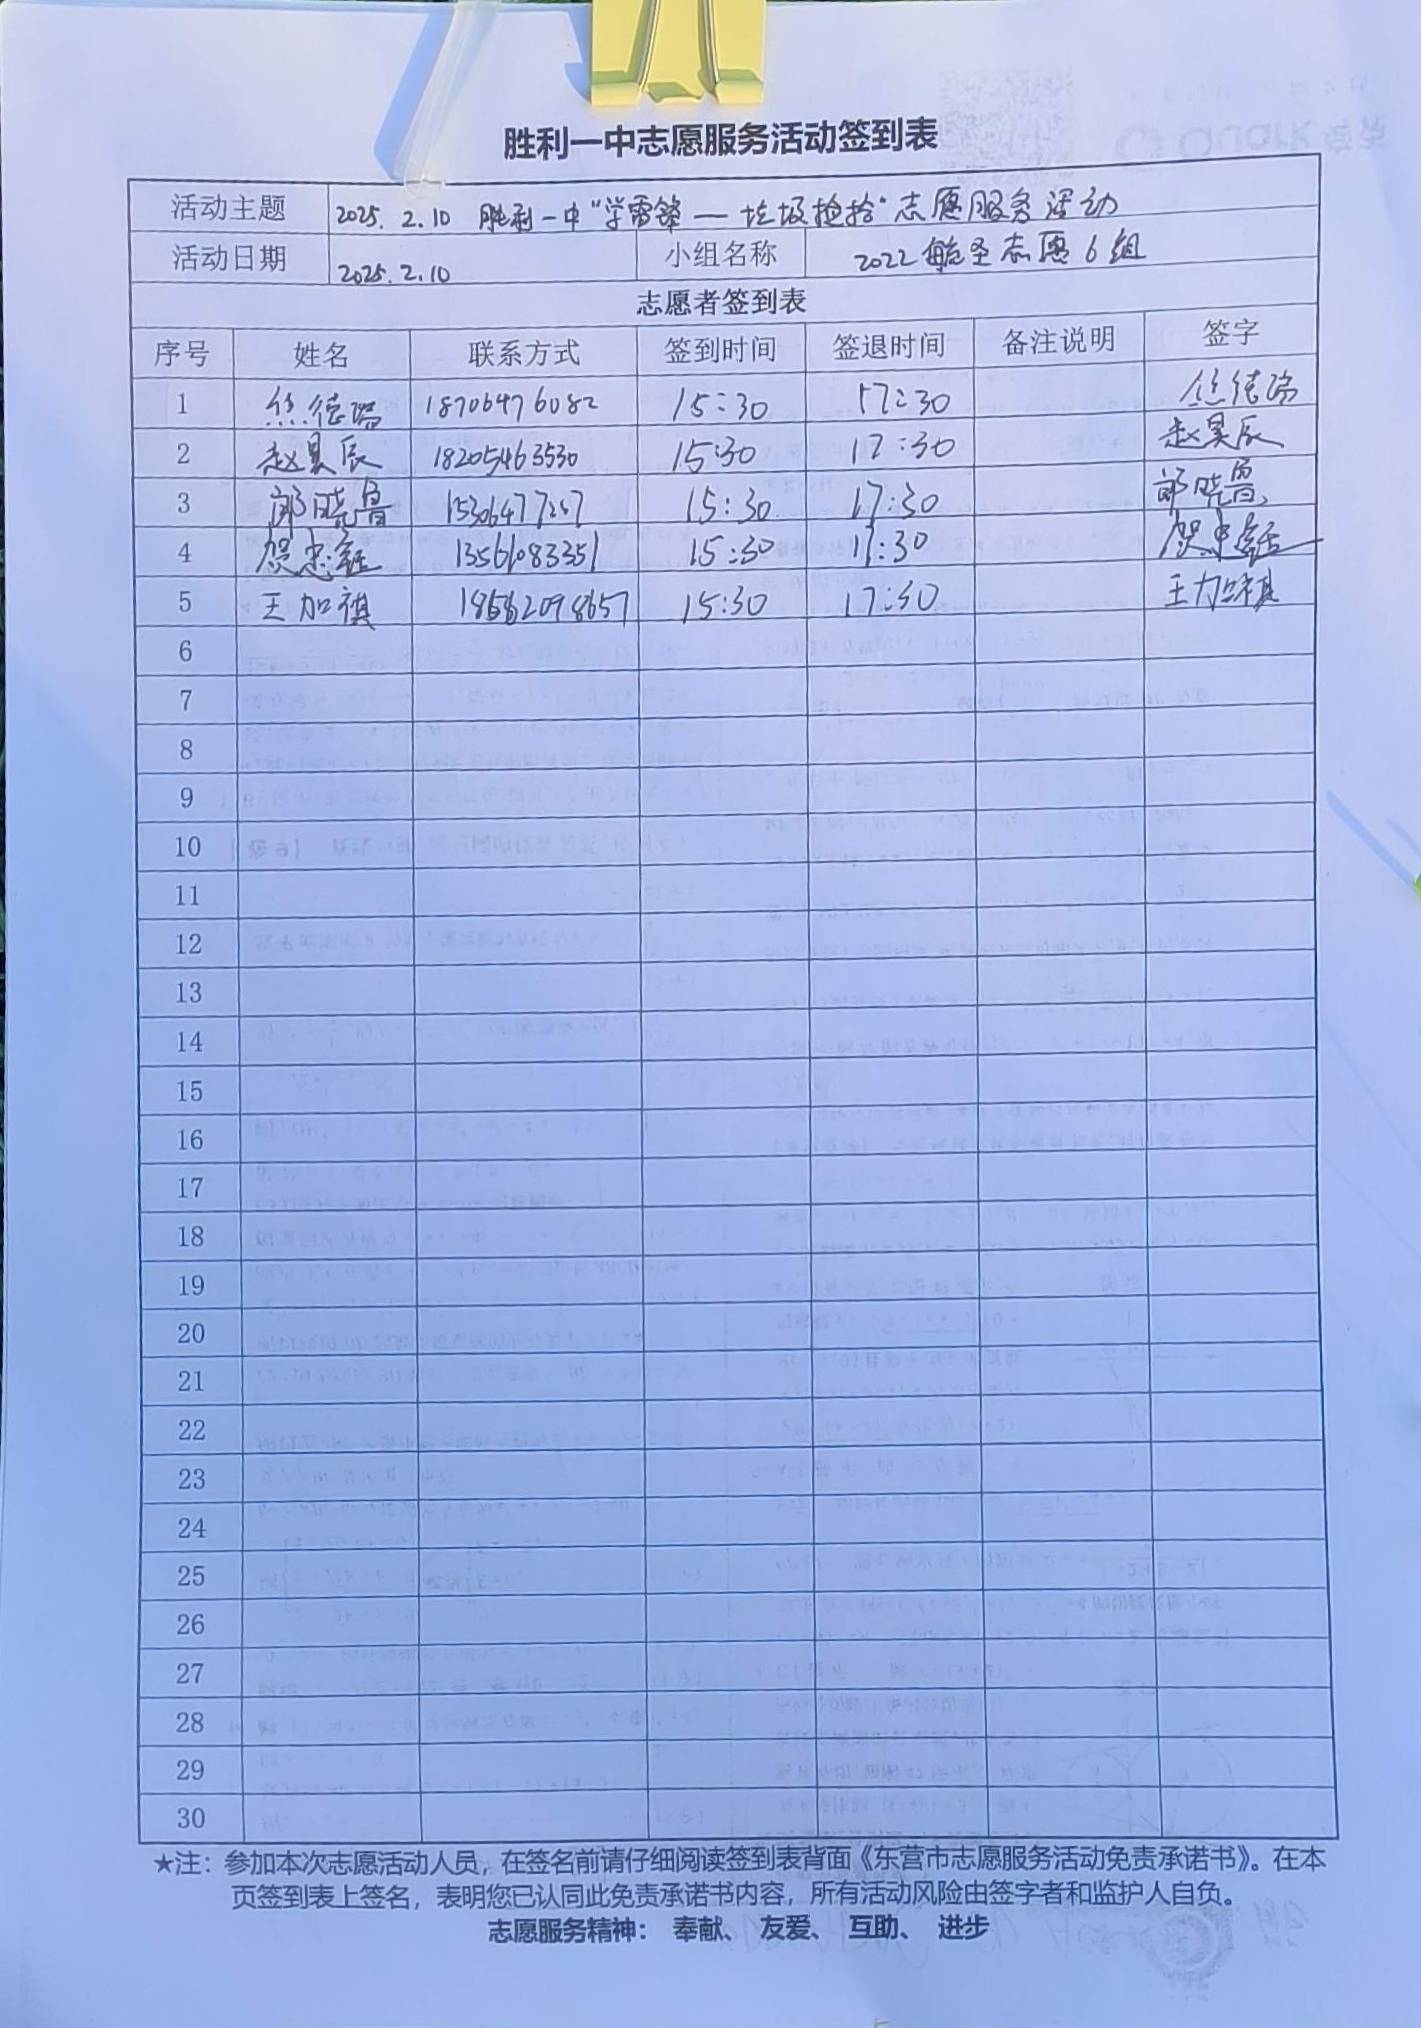 胜利一中志愿服务活动签到表
活动主题 2025. 2.10 胜利一中“学雷锋—垃圾捡拾”志愿服务活动
活动日期 2025.2.10 小组名称 2022 志愿6组
志愿者签到表
序号 姓名 联系方式 签到时间 签退时间 备注说明 签字
1 丝德瑞 18706476082 15:30 17:30 丝德瑞
2 赵昊辰 18205463530 15:30 17:30 赵昊辰
3 郎晓鲁 15:30 17:30 郎晓鲁
4 贺忠 13561083351 15:30 17:30 贺忠
5 王加祺 15:30 17:30 王加祺
6
7
8
9
10
11
12
13
14
15
16
17
18
19
20
21
22
23
24
25
26
27
28
29
30
★注：参加本次志愿活动人员，在签名前请仔细阅读签到表背面《东营市志愿服务活动免责承诺书》。在本
页签到表上签名，表明您已认同此免责承诺书内容，所有活动风险由签字者和监护人自负。
志愿服务精神： 奉献、 友爱、 互助、 进步